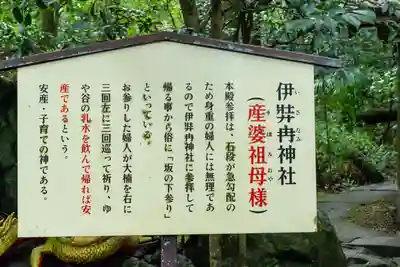 伊弉冉神社
いさなみ
(産婆祖母様)
うぼみおや
本殿参拝は、石段が急勾配の
ため身重の婦人には無理であ
るので伊弉冉神社に参拝して
帰る事から俗に「坂の下参り」
といっている。
お参りした婦人が大楠を右に
三回左に三回巡って祈り、ゆ
や谷の乳水を飲んで帰れば安
産であるという。
安産・子育ての神である。